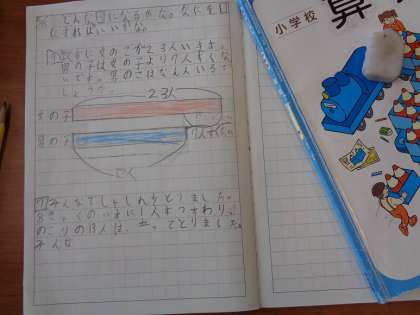 どんな図になるかな。なにを
すればいいかな。
に女のこが23人
男の子は女の子より7人すくな
いです。男のこはなん人いるで
しょうか。
23人
女の子
男の子
7人すくない
7 みんなでしゃしんをとりました。
8きゃくのいすに1人ずつすわり、
のこりの13人は、立ってとりました。
みんな
小学校
算